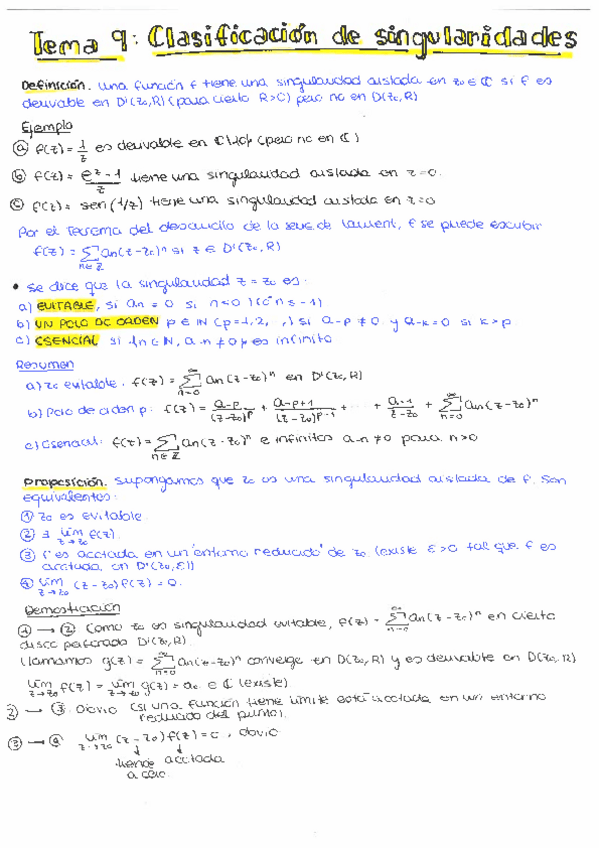 Tema 9: Clasificación de singularidades
Definición. Una función f tiene una singularidad aislada en z₀ ∈ ℂ si f es
derivable en D'(z₀,R) (para cierto R>0) pero no en D(z₀,R)
Ejemplo
ⓐ f(z) = 1/z es derivable en ℂ\{0} (pero no en ℂ)
ⓑ f(z) = (e^z - 1)/z tiene una singularidad aislada en z=0.
ⓒ f(z) = sen(1/z) tiene una singularidad aislada en z=0
Por el Teorema del desarrollo de la serie de Laurent, f se puede escribir
f(z) = Σ_{n∈ℤ} an(z-z₀)^n si z ∈ D'(z₀,R)
• Se dice que la singularidad z = z₀ es:
a) EVITABLE, si an = 0 si n<0 (n ≤ -1)
b) UN POLO DE ORDEN p ∈ ℕ (p=1,2, ) si a-p ≠ 0 y a-k = 0 si k > p
c) ESENCIAL si {n ∈ ℕ, a-n ≠ 0} es infinito
Resumen
a) z₀ evitable. f(z) = Σ_{n=0}^∞ an(z-z₀)^n en D'(z₀,R)
b) Polo de orden p: f(z) = a-p/(z-z₀)^p + a-p+1/(z-z₀)^{p-1} + ··· + a-1/(z-z₀) + Σ_{n=0}^∞ an(z-z₀)^n
c) Esencial: f(z) = Σ_{n∈ℤ} an(z-z₀)^n e infinitos a-n ≠ 0 para n>0
Proposición. Supongamos que z₀ es una singularidad aislada de f. Son
equivalentes:
① z₀ es evitable.
② ∃ lím_{z→z₀} f(z).
③ f es acotada en un 'entorno reducido' de z₀ (existe ε>0 tal que f es
acotada en D'(z₀,ε))
④ lím_{z→z₀} (z-z₀)f(z) = 0.
Demostración
① → ② Como z₀ es singularidad evitable, f(z) = Σ_{n=0}^∞ an(z-z₀)^n en cierto
disco perforado D'(z₀,R).
(llamamos g(z) = Σ_{n=0}^∞ an(z-z₀)^n converge en D(z₀,R) y es derivable en D(z₀,R)
lím_{z→z₀} f(z) = lím_{z→z₀} g(z) = a₀ ∈ ℂ (existe)
② → ③ Obvio (si una función tiene límite está acotada en un entorno
reducido del punto).
③ → ④ lím_{z→z₀} (z-z₀)f(z) = 0, obvio
↓ ↓
tiende acotada
a cero.